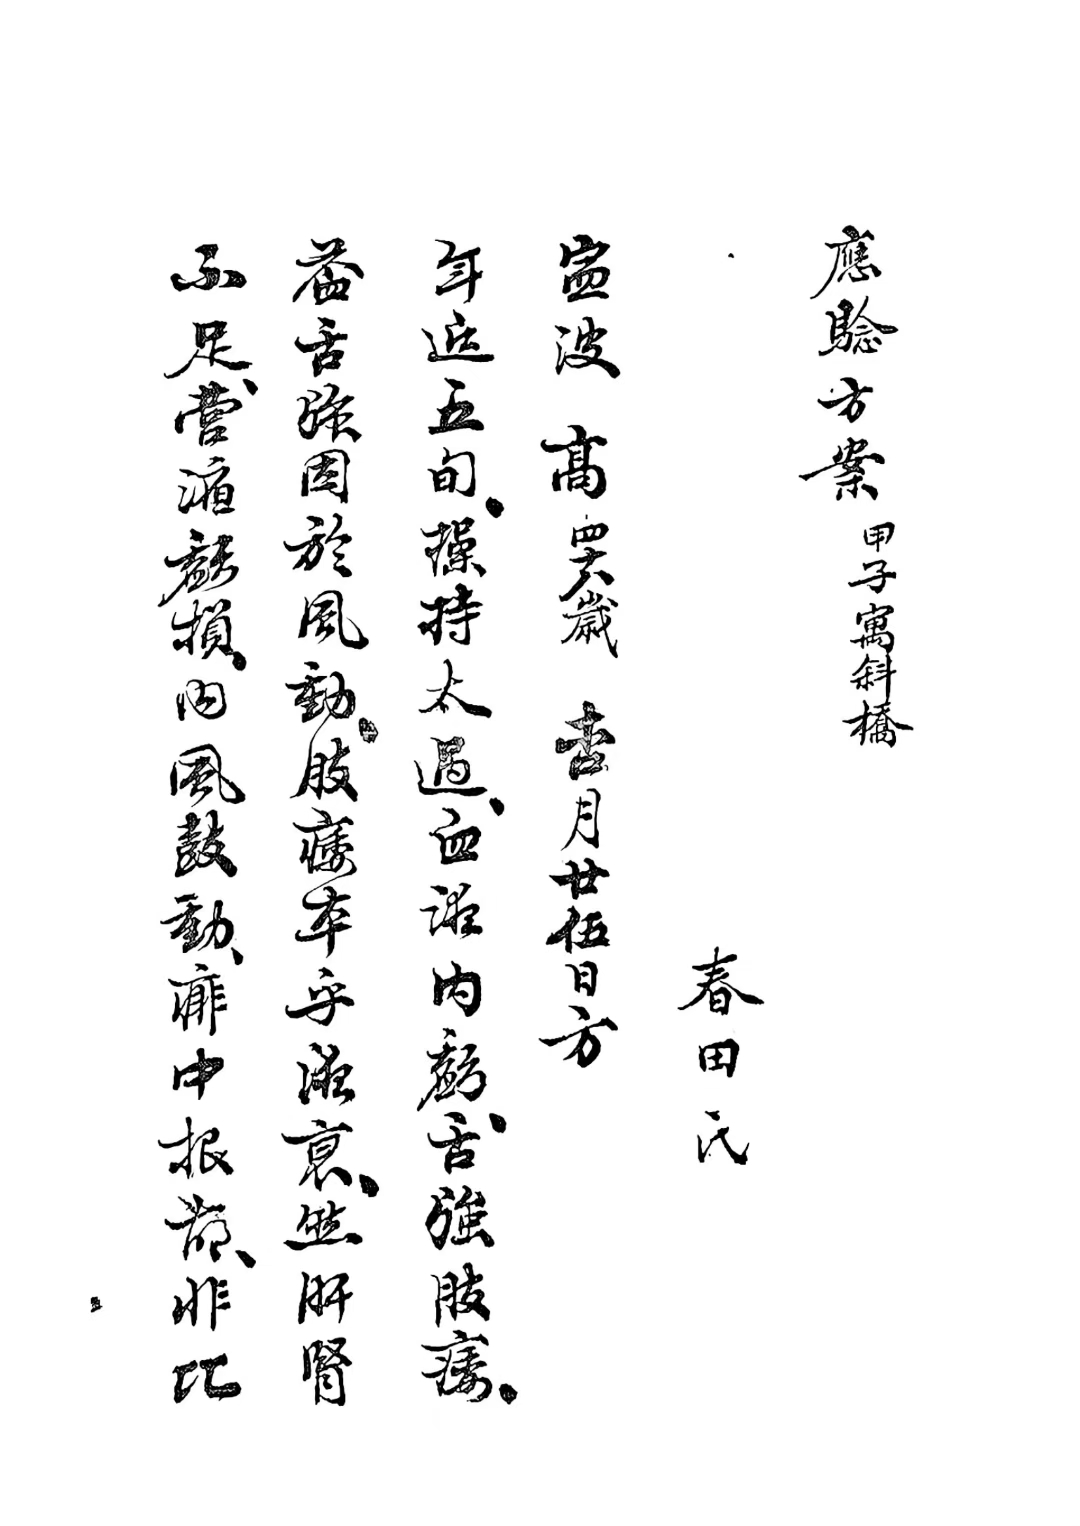 應騐方案 甲子寓斜橋
春田氏
寍波 高 四十六歲 杏月廿伍日方
年近五旬、操持太過、血液內虧、舌強肢痿、
蓋舌強因於風動、肢痿本乎液衰、然肝腎
不足、營液虧損、內風鼓動、痱中根萌、非比